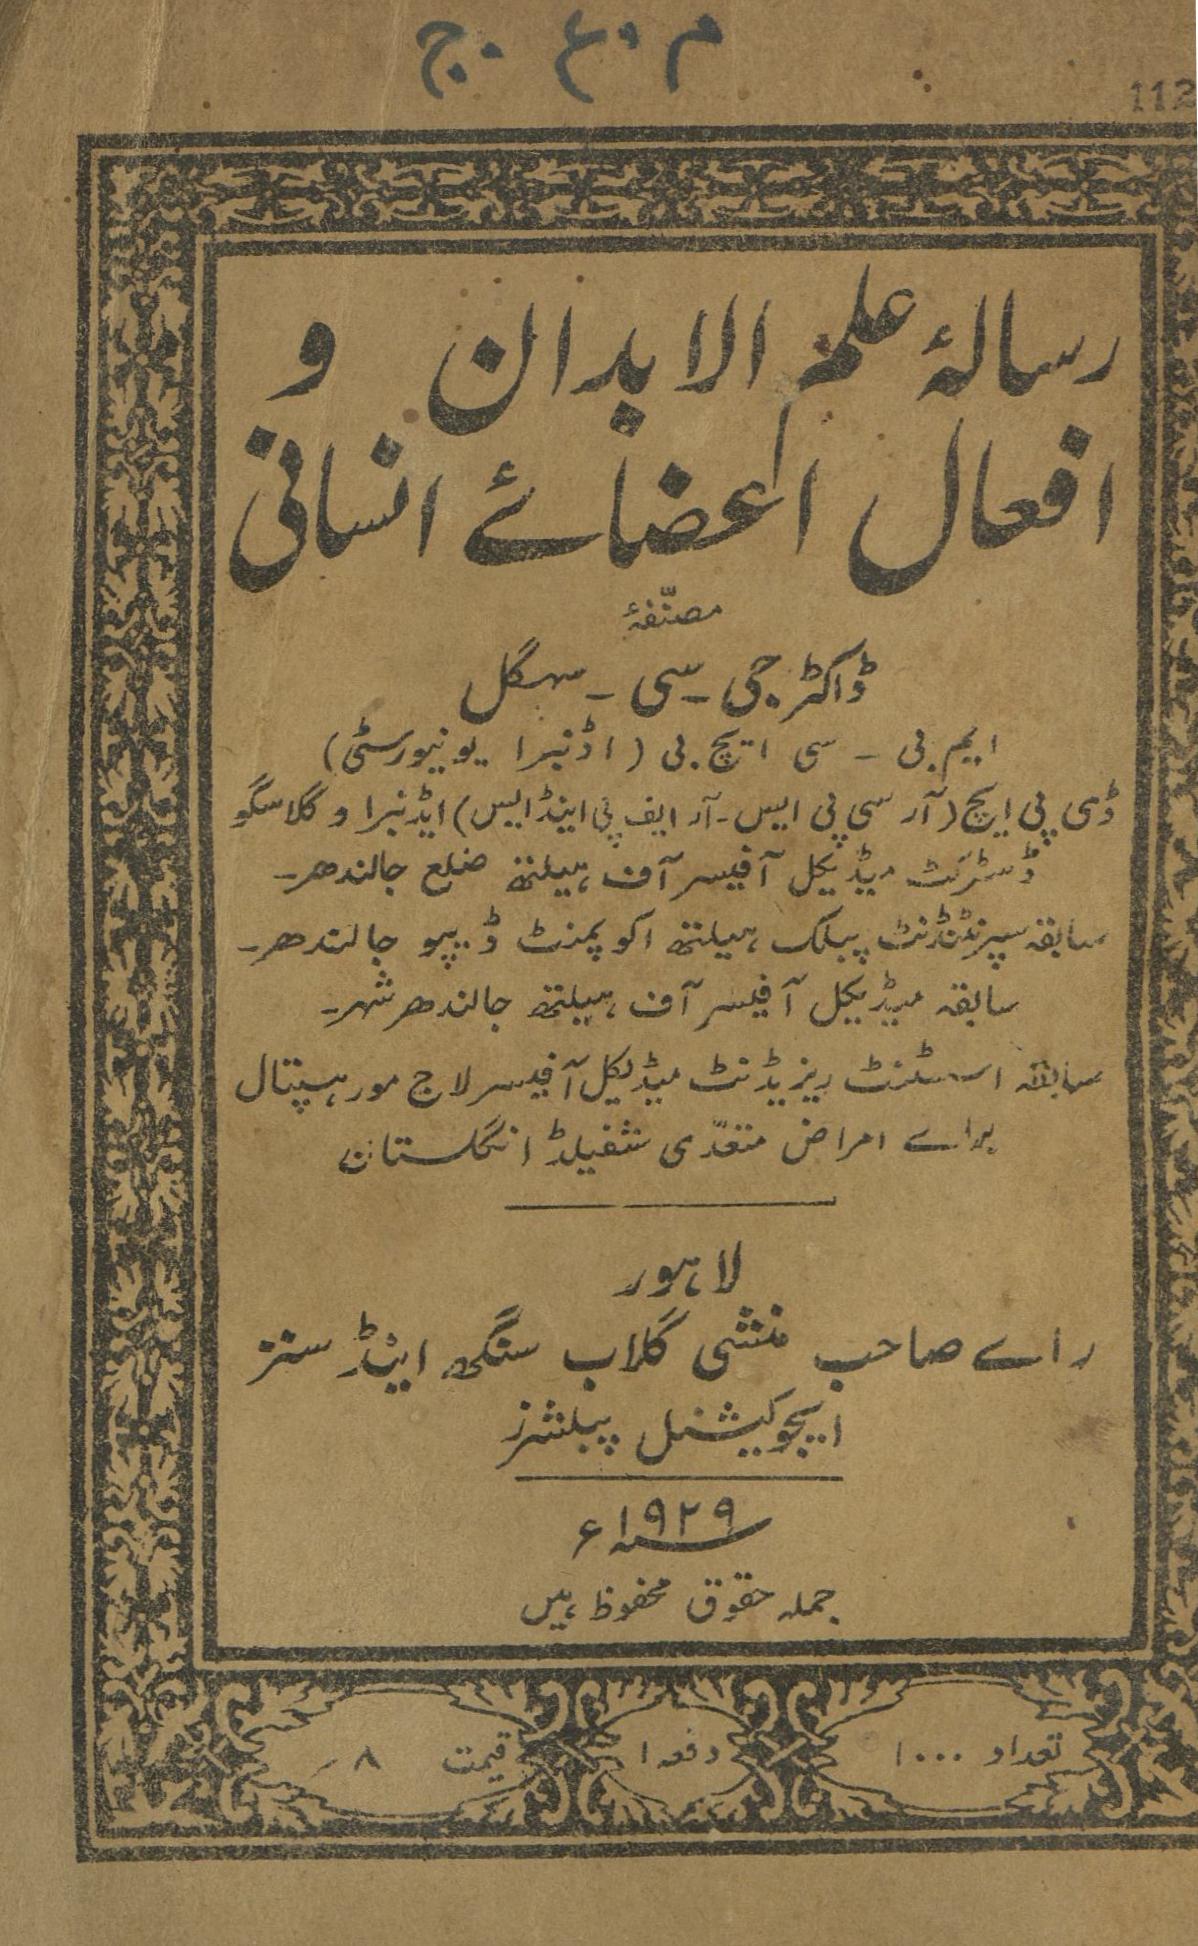 م۔ع۔ج
112
رسالۂ علم الابدان و
افعال اعضائے انسانی
مصنّفۂ
ڈاکٹر جی۔سی۔سہگل
ایم بی۔سی ایچ بی (اڈنبرا یونیورسٹی)
ڈی پی ایچ (آر سی پی ایس۔آر ایف پی اینڈ ایس) ایڈنبرا و گلاسگو
ڈسٹرکٹ میڈیکل آفیسر آف ہیلتھ ضلع جالندھر۔
سابقہ سپرنٹنڈنٹ پبلک ہیلتھ اکوپمنٹ ڈیپو جالندھر۔
سابقہ میڈیکل آفیسر آف ہیلتھ جالندھر شہر۔
سابقہ اسسٹنٹ ریزیڈنٹ میڈیکل آفیسر لاج مور ہسپتال
براے امراض متعدّی شفیلڈ انگلستان
لاہور
راے صاحب منشی گلاب سنگھ اینڈ سنز
ایجوکیشنل پبلشرز
۱۹۲۹ء
جملہ حقوق محفوظ ہیں
تعداد ۱۰۰۰ دفعہ ۱ قیمت ۸؍